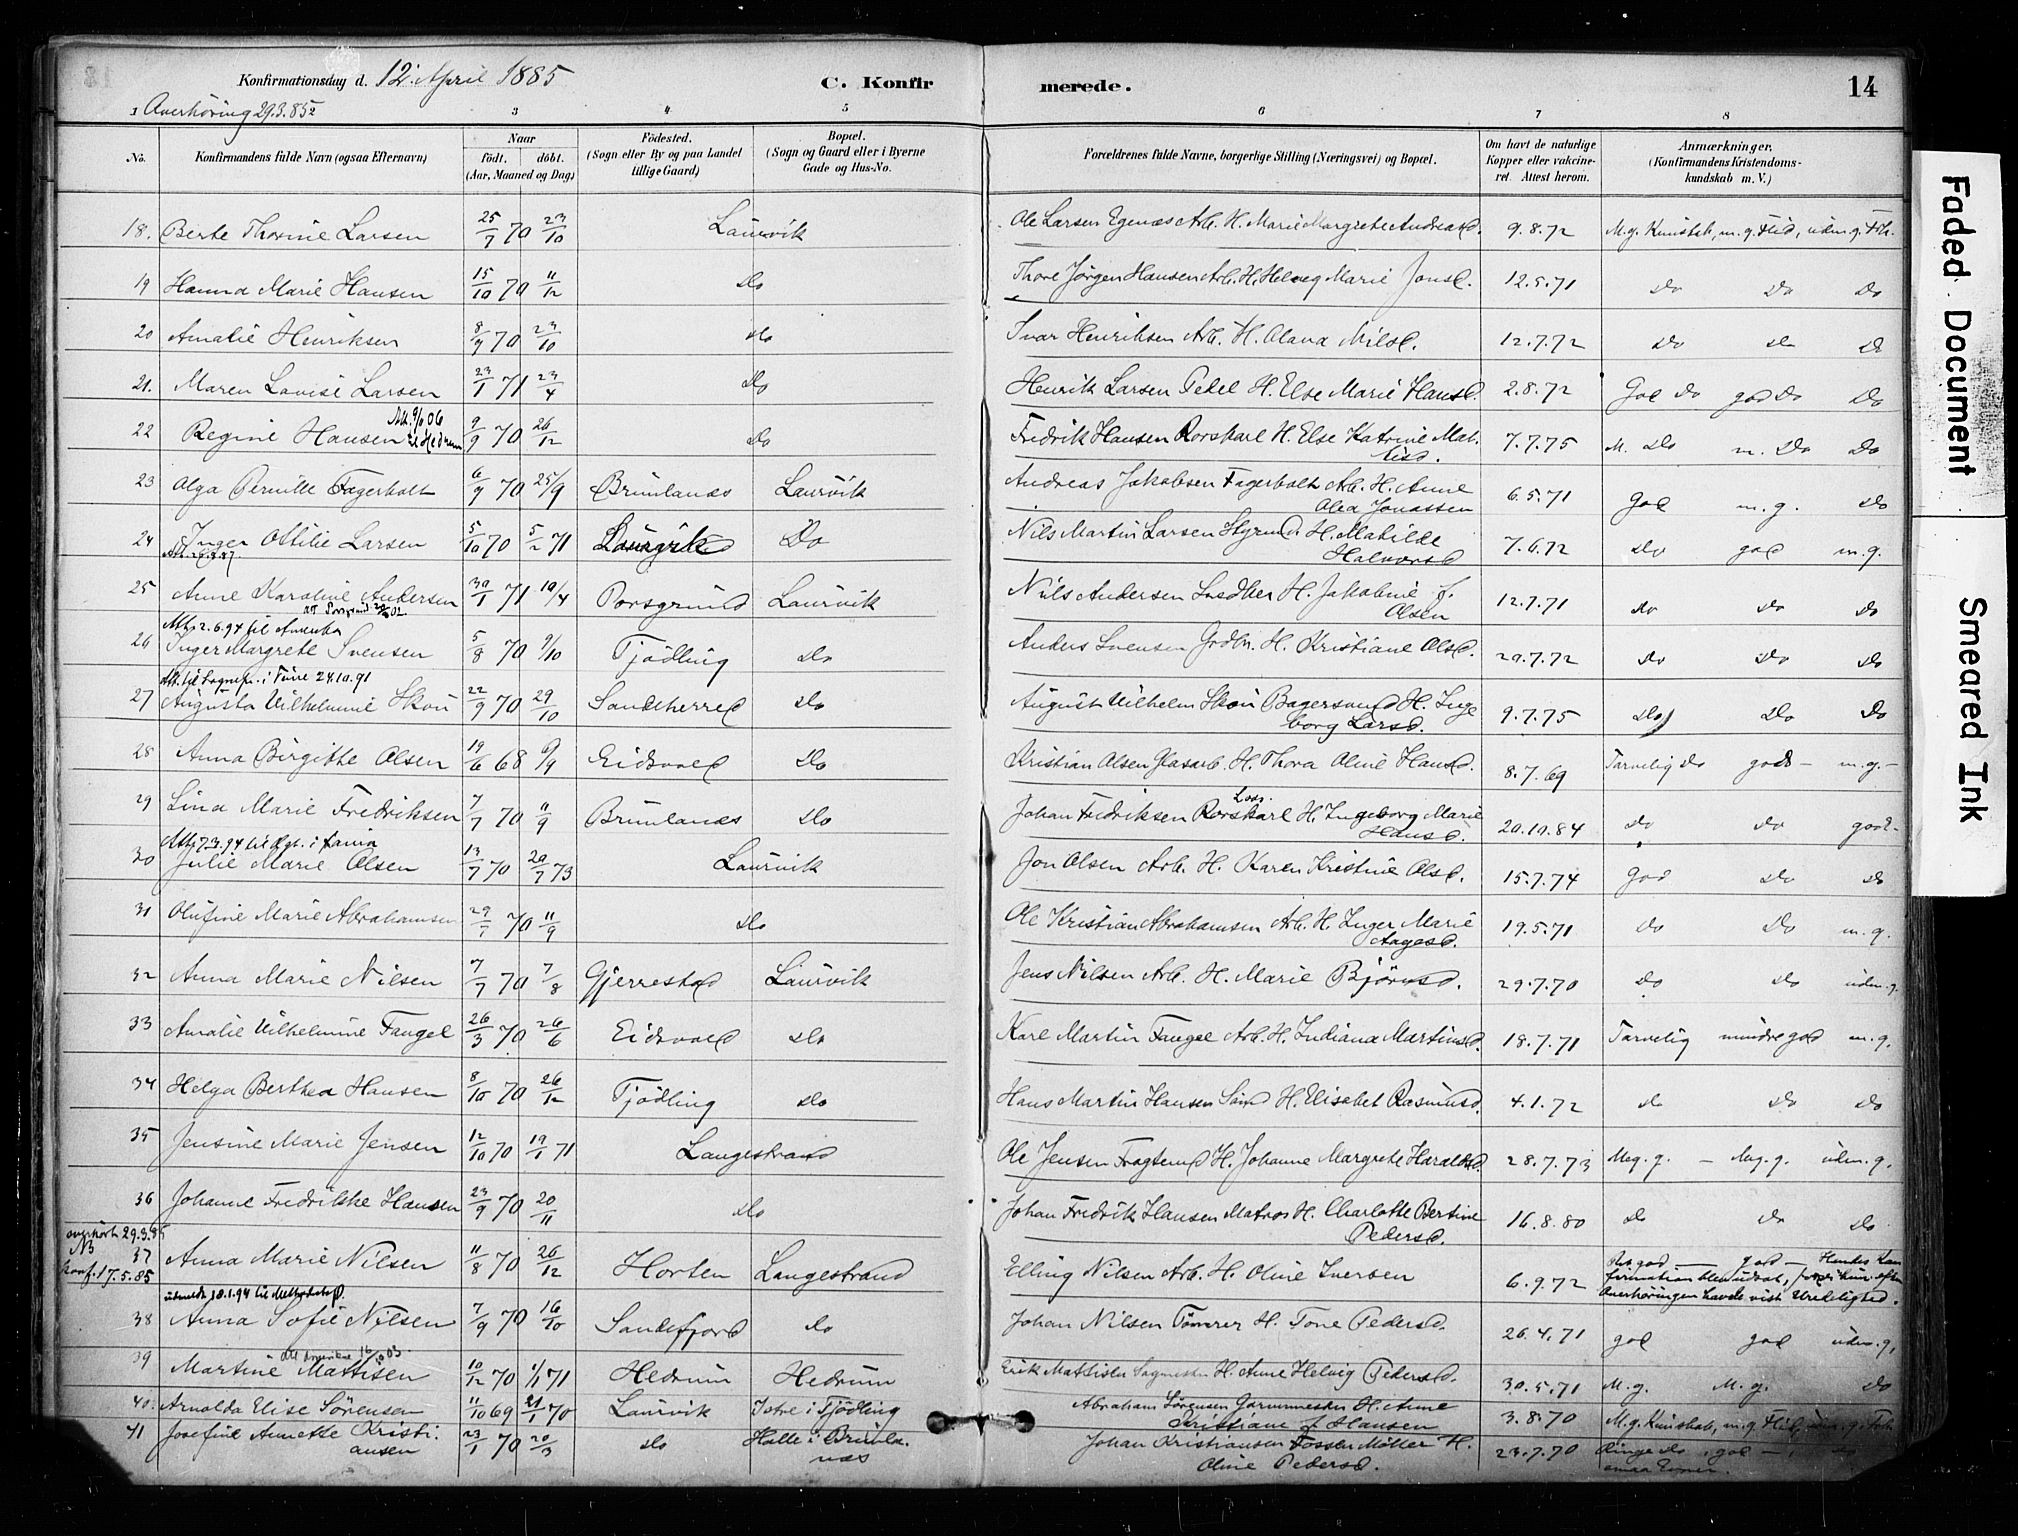 Konfirmationsdag d. 12. April 1885 C. Konfir merede. 14
1 Averhøring 29.3.85 2 3 4 5 6 7 8
No. Konfirmandens fulde Navn (ogsaa Efternavn) Naar født. døbt. (Aar, Maaned og Dag) Fødested. (Sogn eller By og paa Landet tillige Gaard) Bopæl. (Sogn og Gaard eller i Byerne Gade og Hus-No. Forældrenes fulde Navne, borgerlige Stilling (Næringsvei) og Bopæl. Om havt de naturlige Kopper eller vakcineret. Attest herom. Anmærkninger. (Konfirmandens Kristendomskundskab m. V.)
18. Berte Thorine Larsen 25/7 70 23/10 Laurvik Ole Larsen Egenæs Arb. H. Marie Margrete Andreasd. 9.8.72 M.g. Kundskab, m.g. Flid, udm. g. Forh.
19 Hanna Marie Hansen 15/10 70 11/12 Do Thore Jørgen Hansen Arb. H. Helveg Marie Jonsd. 12.5.71 Do Do Do
20 Amalie Henriksen 8/9 70 23/10 Do Ivar Henriksen Arb. H. Olava Nilsd. 12.7.72 Do Do Do
21. Maren Lovise Larsen 23/1 71 23/4 Do Henrik Larsen Pedel H. Else Marie Hansd. 2.8.72 God Do god Do Do
22 Regine Hansen Att. 9/ 06 til Hedrum 9/9 70 26/12 Do Fredrik Hansen Rorskarl H. Else Katrine Mat-
tisd. 7.7.75 M. Do m. Do Do
23 Olga Pernille Fagerholt 6/9 70 25/9 Brunlanæs Laurvik Andreas Jakobsen Fagerholt Arb. H. Anne
Olea Jonassen 6.5.71 God m.g. Do
24 Inger Ottilie Larsen 5/10 70 5/2 71 Laurvik Do Nils Martin Larsen Styrmd. H. Matilde
Halvorsd. 7.6.72 Do god m.g.
25 Anne Karoline Andersen 30/1 71 10/4 Porsgrund Laurvik Nils Andersen H. Jakobine f.
Olsen 12.7.71 Do Do Do
Att. 2.6.94 til Amerika
26 Inger Margrete Svensen 5/8 70 9/10 Tjødling Do Anders Svensen H. Kristiane Olsd. 20.7.72 Do Do Do
27 Augusta Vilhelmine Skou 22/9 70 29/10 Sandeherred Do August Vilhelm Skou Bagersvend H. Inge
borg Larsd. 9.7.75 Do Do Do
28 Anna Birgitte Olsen 19/6 68 9/9 Eidsvold Do Kristian Olsen Glasarb. H. Thora Oline Hansd. 8.7.69 Tarvelig Do god - m.g. -
29 Lina Marie Fredriksen 7/7 70 11/9 Brunlanæs Do Johan Fredriksen Rorskarl H. Ingeborg Marie
Hansd. 20.10.84 Do Do god -
30 Julie Marie Olsen 13/7 70 20/7 73 Laurvik Jon Olsen Arb. H. Karen Kristine Olsd. 15.7.74 God Do Do
31 Olufine Marie Abrahamsen 29/1 70 11/9 Do Ole Kristian Abrahamsen Arb. H. Inger Marie
Aagesd. 19.5.71 Do Do m.g.
32 Anna Marie Nilsen 7/7 70 7/8 Gjerrestad Laurvik Jens Nilsen Arb. H. Marie Bjørnsd. 29.7.70 Do Do udm. g.
33 Amalie Vilhelmine Fangel 26/3 70 26/6 Eidsvold Do Karl Martin Fangel Arb. H. Indiana Martinsd. 18.7.71 Tarvelig mindre god m.g.
34 Helga Berthea Hansen 8/10 70 26/12 Tjødling Do Hans Martin Hansen H. Elisabet Rasmusd. 4.1.72 Do Do Do
35 Jensine Marie Jensen 12/10 70 19/1 71 Langestrand Ole Jensen H. Johanne Margrete Haraldsd. 28.7.73 Meg. g. - Meg. g. udm. g.
36 Johanne Fredrikke Hansen 23/9 70 20/11 Do Johan Fredrik Hansen Matros H. Charlotte Bertine
Pedersd. 16.8.80 Do Do Do
overhørt 29.3.85
NB 37 konf. 17.5.85 Anna Marie Nilsen 11/8 70 26/12 Horten Langestrand Elling Nilsen Arb. H. Oline Iversen 6.9.72 god - god - Hendes Kon
firmation blev udsat,
Averhøringen havde vist Uredelighed.
udmeldt 18.1.94 til
38 Anna Sofie Nilsen 7/9 70 16/10 Sandefjord Do Johan Nilsen Tømrer H. Tone Pedersd. 26.4.71 god god udm. g.
39 Martine Mattisen 10/12 70 1/1 71 Hedrum Hedrum Erik Mattisen H. Anne Helvig Pedersd. 30.5.71 M.g. M.g. Do
40. Arnolda Elise Sørensen 11/10 69 21/1 70 Laurvik Istre i Tjødling Abraham Sørensen H. Anne
Kristiane f. Hansen 3.8.70 M.g. Kundskab, m.g. Flid, udm. g. Forh.
41 Josefine Annette Kristi-
ansen 23/1 70 20/3 Do Halle i Brunla-
næs Johan Kristiansen H.
Oline Pedersd. 23.7.70 Ringe Do, god -, Do
smaa Evner.
Faded Document
Smeared Ink